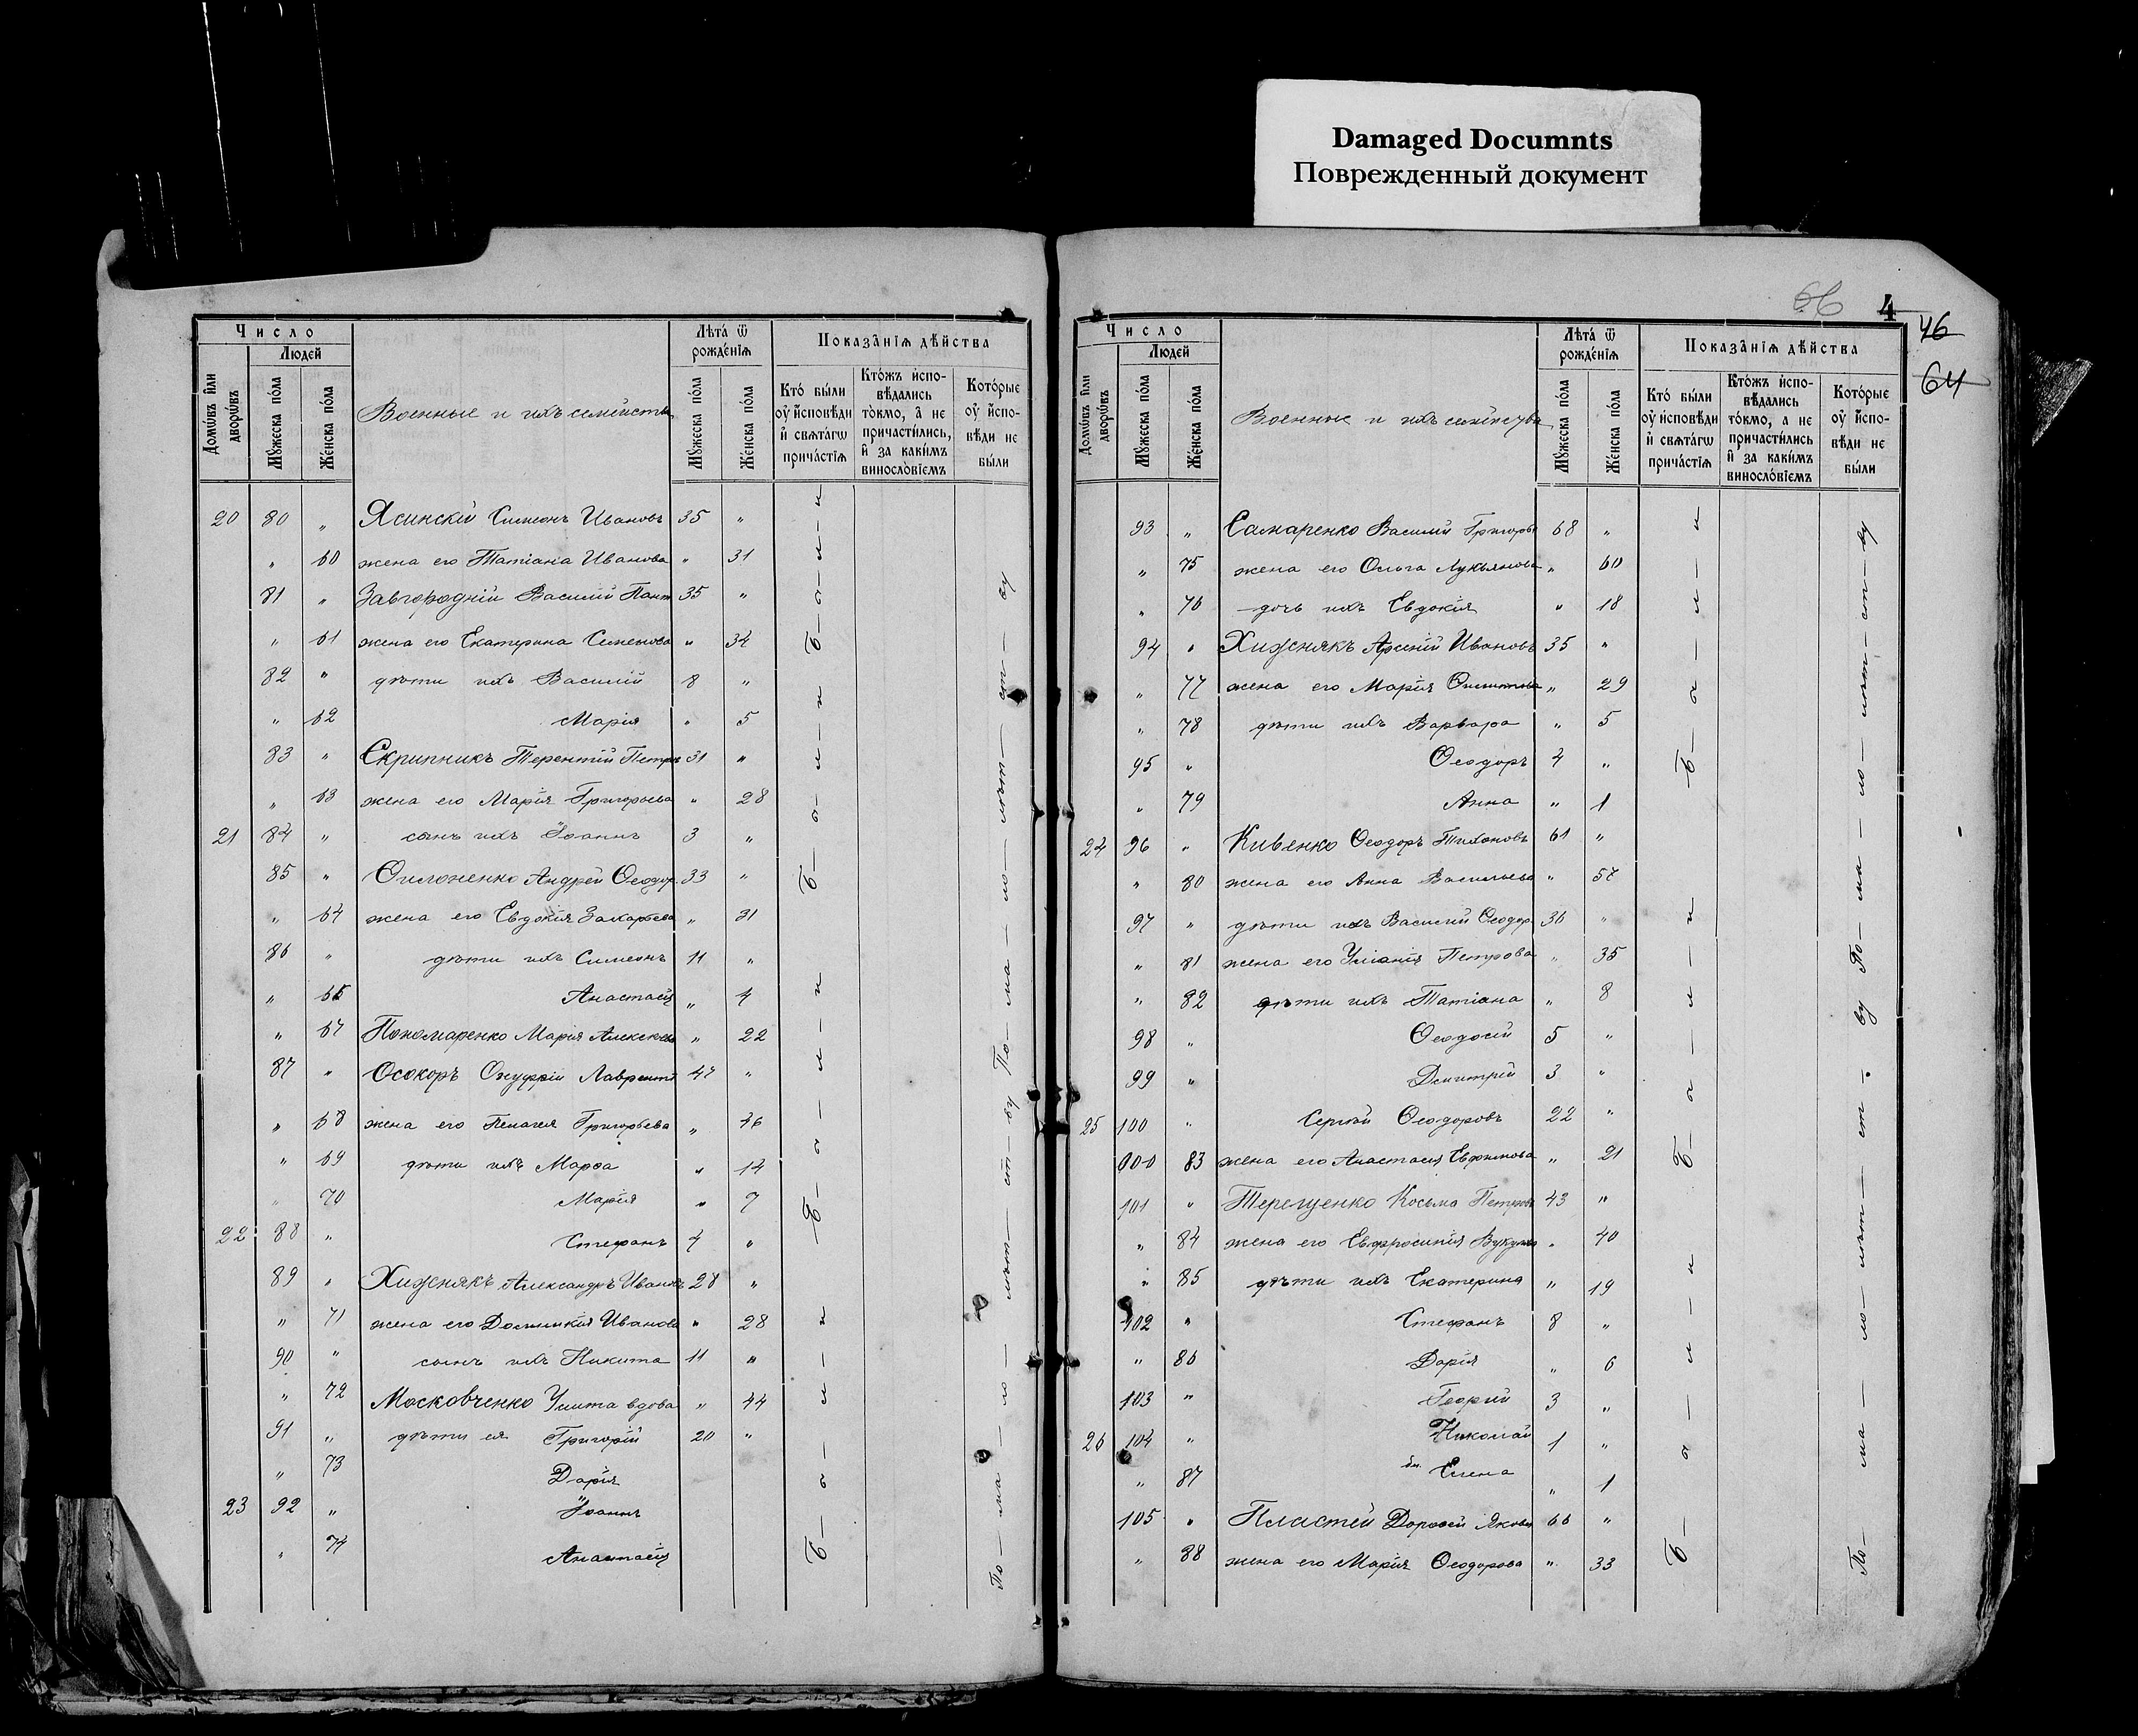 Damaged Documnts
Поврежденный документ
66 4
46
64
Число
Людей
Домѡвъ или дворѡвъ
Мꙋжеска пола
Женска пола
Военные и ихъ семейства
Лѣта ѿ рожденїѧ
Мꙋжеска пола
Женска пола
Показанїѧ дѣйства
Кто были оу исповѣди и свѧтагѡ причастїѧ
Ктожъ испо-
вѣдались
токмо, а не
причастились,
и за какимъ
винословїемъ
Которые
оу испо-
вѣди не
были
20 80 " Ясинскій Симеонъ Ивановъ 35 "
" 60 жена его Татіана Иванова " 31
81 " Завгородній Василій Пант 35 "
" 61 жена его Екатерина Семенова " 34
82 " дѣти ихъ Василій 8 "
" 62 Марія " 5
83 " Скрипникъ Терентій Петров 31 "
" 63 жена его Марія Григорьева " 28
21 84 " сынъ ихъ Іоаннъ 3 "
85 " Ѳилоненко Андрей Ѳеодор. 33 "
" 64 жена его Евдокія Захарьева " 31
86 " дѣти ихъ Симеонъ 11 "
" Анастасія " 4
" 67 Пономаренко Марія Алексѣева " 22
87 " Осокоръ Онуфрій Лаврент 47 "
" 68 жена его Пелагея Григорьева " 46
" 69 дѣти ихъ Марѳа " 14
" 70 Марія " 7
22 88 " Стефанъ 4 "
89 " Хижнякъ Александръ Ивановъ 28 "
" 71 жена его Домникія Иванова " 28
90 " сынъ ихъ Никита 11 "
" 72 Московченко Улита вдова " 44
91 " дѣти ея Григорій 20 "
" 73 Дарія
23 92 " Іоаннъ
" 74 Анастасія
Б—ы—л—и
Б—ы—л—и
Б—ы—л—и
Б—ы—л—и
По—ма—ло—лѣт—ст—ву
По—ма—ло—лѣт—ст—ву
Число
Людей
Домѡвъ или дворѡвъ
Мꙋжеска пола
Женска пола
Военные и ихъ семейства
Лѣта ѿ рожденїѧ
Мꙋжеска пола
Женска пола
Показанїѧ дѣйства
Кто были оу исповѣди и свѧтагѡ причастїѧ
Ктожъ испо-
вѣдались
токмо, а не
причастились
и за какимъ
винословїемъ
Которые
оу испо-
вѣди не
были
93 " Самаренко Василій Григорьев 68 "
" 75 жена его Ольга Лукьянова " 60
" 76 дочь ихъ Евдокія " 18
94 " Хижнякъ Арсеній Ивановъ 35 "
" 77 жена его Марія " 29
" 78 дѣти ихъ Варвара " 5
95 " Ѳеодоръ 4 "
" 79 Анна " 1
24 96 " Кивенко Ѳеодоръ Тихоновъ 61 "
" 80 жена его Анна Васильева " 57
97 " дѣти ихъ Василій Ѳеодор. 36 "
" 81 жена его Уліанія Петрова " 35
" 82 дѣти ихъ Татіана " 8
98 " Ѳеодосій 5 "
99 " Дмитрій 3 "
25 100 " Сергѣй Ѳеодоровъ 22 "
000 83 жена его Анастасія Евфимова " 21
101 " Терещенко Косьма Петровъ 43 "
" 84 жена его Евфросинія Вукулова " 40
" 85 дѣти ихъ Екатерина " 19
102 " Стефанъ 8 "
" 86 Дарія " 6
103 " Георгій 3 "
26 104 " Николай 1 "
" 87 бл. Елена " 1
105 " Пластей Дороѳей Яковл 66 "
" 88 жена его Марія Ѳеодорова " 33
Б—ы—л—и
Б—ы—л—и
Б—ы—л—и
По—ма—ло—лѣт—ст—ву
По—ма—ло—лѣт—ст—ву